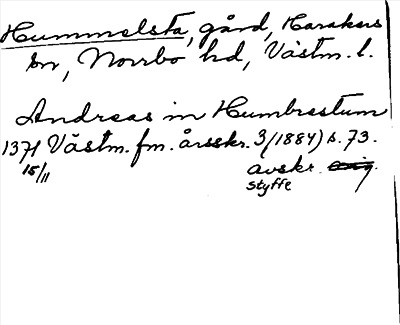 Hummelsta, gård, Harakers
sn, Norrbo hd, Västm. l.
Andreas in Humbrestum
1371 Västm. fm. årsskr. 3 (1884) s. 73.
15/11 avskr. orig.
Styffe